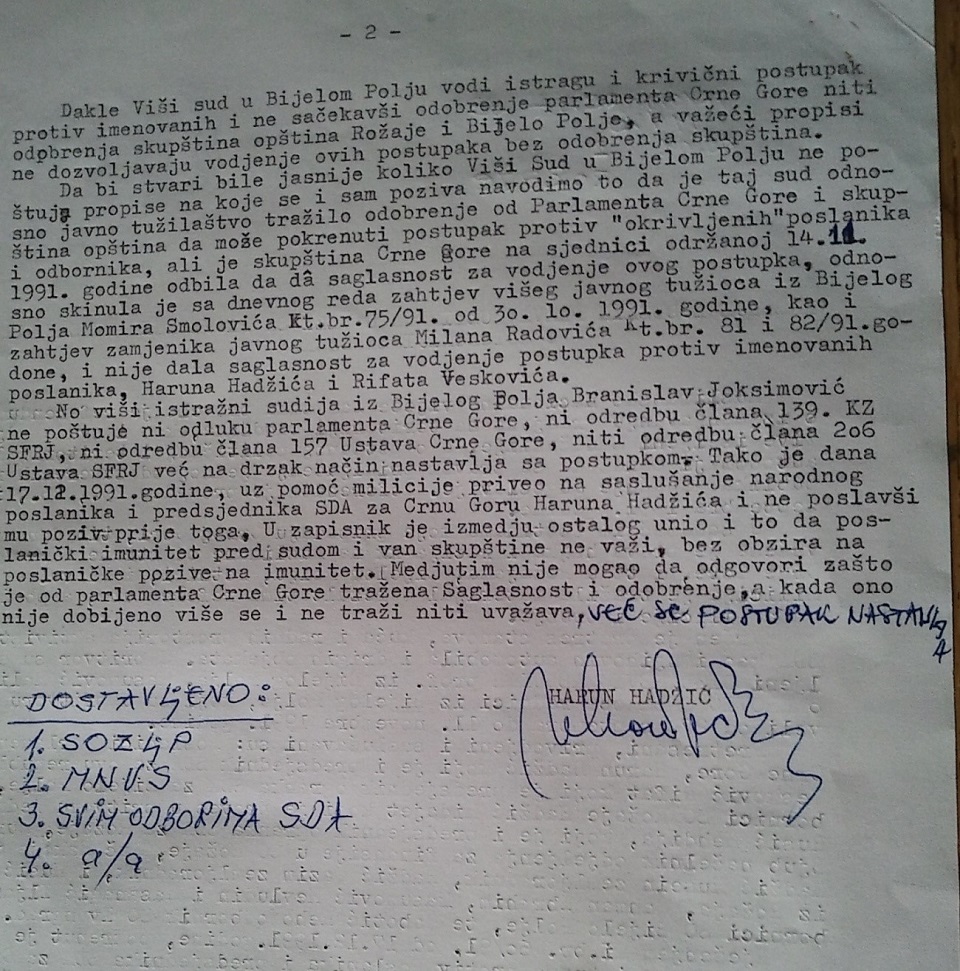 - 2 -
Dakle Viši sud u Bijelom Polju vodi istragu i krivični postupak
protiv imenovanih i ne sačekavši odobrenje parlamenta Crne Gore niti
odobrenja skupština opština Rožaje i Bijelo Polje, a važeći propisi
ne dozvoljavaju vodjenje ovih postupaka bez odobrenja skupština.
Da bi stvari bile jasnije koliko Viši Sud u Bijelom Polju ne po-
štuje propise na koje se i sam poziva navodimo to da je taj sud odno-
sno javno tužilaštvo tražilo odobrenje od Parlamenta Crne Gore i skup-
ština opština da može pokrenuti postupak protiv "okrivljenih"poslanika
i odbornika, ali je skupština Crne gore na sjednici održanoj 14.11.
1991. godine odbila da dâ saglasnost za vodjenje ovog postupka, odno-
sno skinula je sa dnevnog reda zahtjev višeg javnog tužioca iz Bijelog
Polja Momira Smolovića Kt.br.75/91. od 3o. lo. 1991. godine, kao i
zahtjev zamjenika javnog tužioca Milana Radovića Kt.br. 81 i 82/91.go-
done, i nije dala saglasnost za vodjenje postupka protiv imenovanih
poslanika, Haruna Hadžića i Rifata Veskovića.
No viši istražni sudija iz Bijelog Polja Branislav Joksimović
ne poštuje ni odluku parlamenta Crne Gore, ni odredbu člana 139. KZ
SFRJ, ni odredbu člana 157 Ustava Crne Gore, niti odredbu člana 2o6
Ustava SFRJ već na drzak način nastavlja sa postupkom. Tako je dana
17.12.1991.godine, uz pomoć milicije priveo na saslušanje narodnog
poslanika i predsjednika SDA za Crnu Goru Haruna Hadžića i ne poslavši
mu poziv prije toga, U zapisnik je izmedju ostalog unio i to da pos-
lanički imunitet pred sudom i van skupštine ne važi, bez obzira na
poslaničke pozive na imunitet. Medjutim nije mogao da odgovori zašto
je od parlamenta Crne Gore tražena Saglasnost i odobrenje,a kada ono
nije dobijeno više se i ne traži niti uvažava, VEĆ SE POSTUPAK NASTAVLJA
HARUN HADŽIĆ
DOSTAVLJENO:
1. SOZLJP
2. MNVS
3. SVIM ODBORIMA SDA
4. a/a